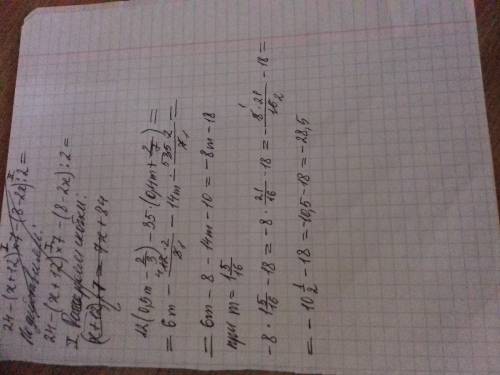 24 - (x + 12) · 7 - (8 - 2x) : 2 =
24 - (x + 12) · 7 - (8 - 2x) : 2 =
I Раскроем скобки.
(x + 12) · 7 = 7x + 84
12 (0,5m - 2/3) - 35 · (0,4m + 2/7) =
= 6m - 12 · 2 / 3 - 14m - 35 · 2 / 7 =
= 6m - 8 - 14m - 10 = -8m - 18
при m = 1 5/16
-8 · 1 5/16 - 18 = -8 · 21/16 - 18 = - 8 · 21 / 16 - 18 =
= -10 1/2 - 18 = -10,5 - 18 = -28,5